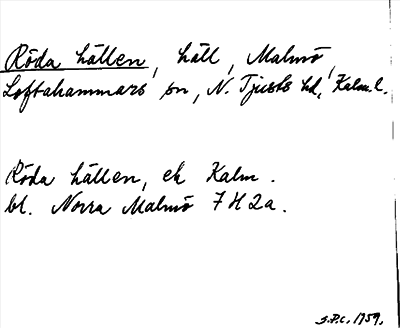 Röda hällen, häll, Malmö,
Loftahammars sn, N. Tjusts hd, Kalm. l.
Röda hällen, ek Kalm.
bl. Norra Malmö 7 H 2 a.
S.P.C. 1759.